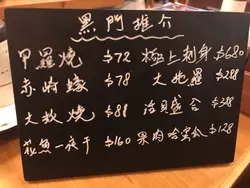 黑門推介
甲羅燒 $72 極上刺身 $680
赤崎蠔 $78 大池羅 $288
大蚝燒 $88 冶貝盛合 $388
花魚一夜干 $160 果肉哈蜜瓜 $128